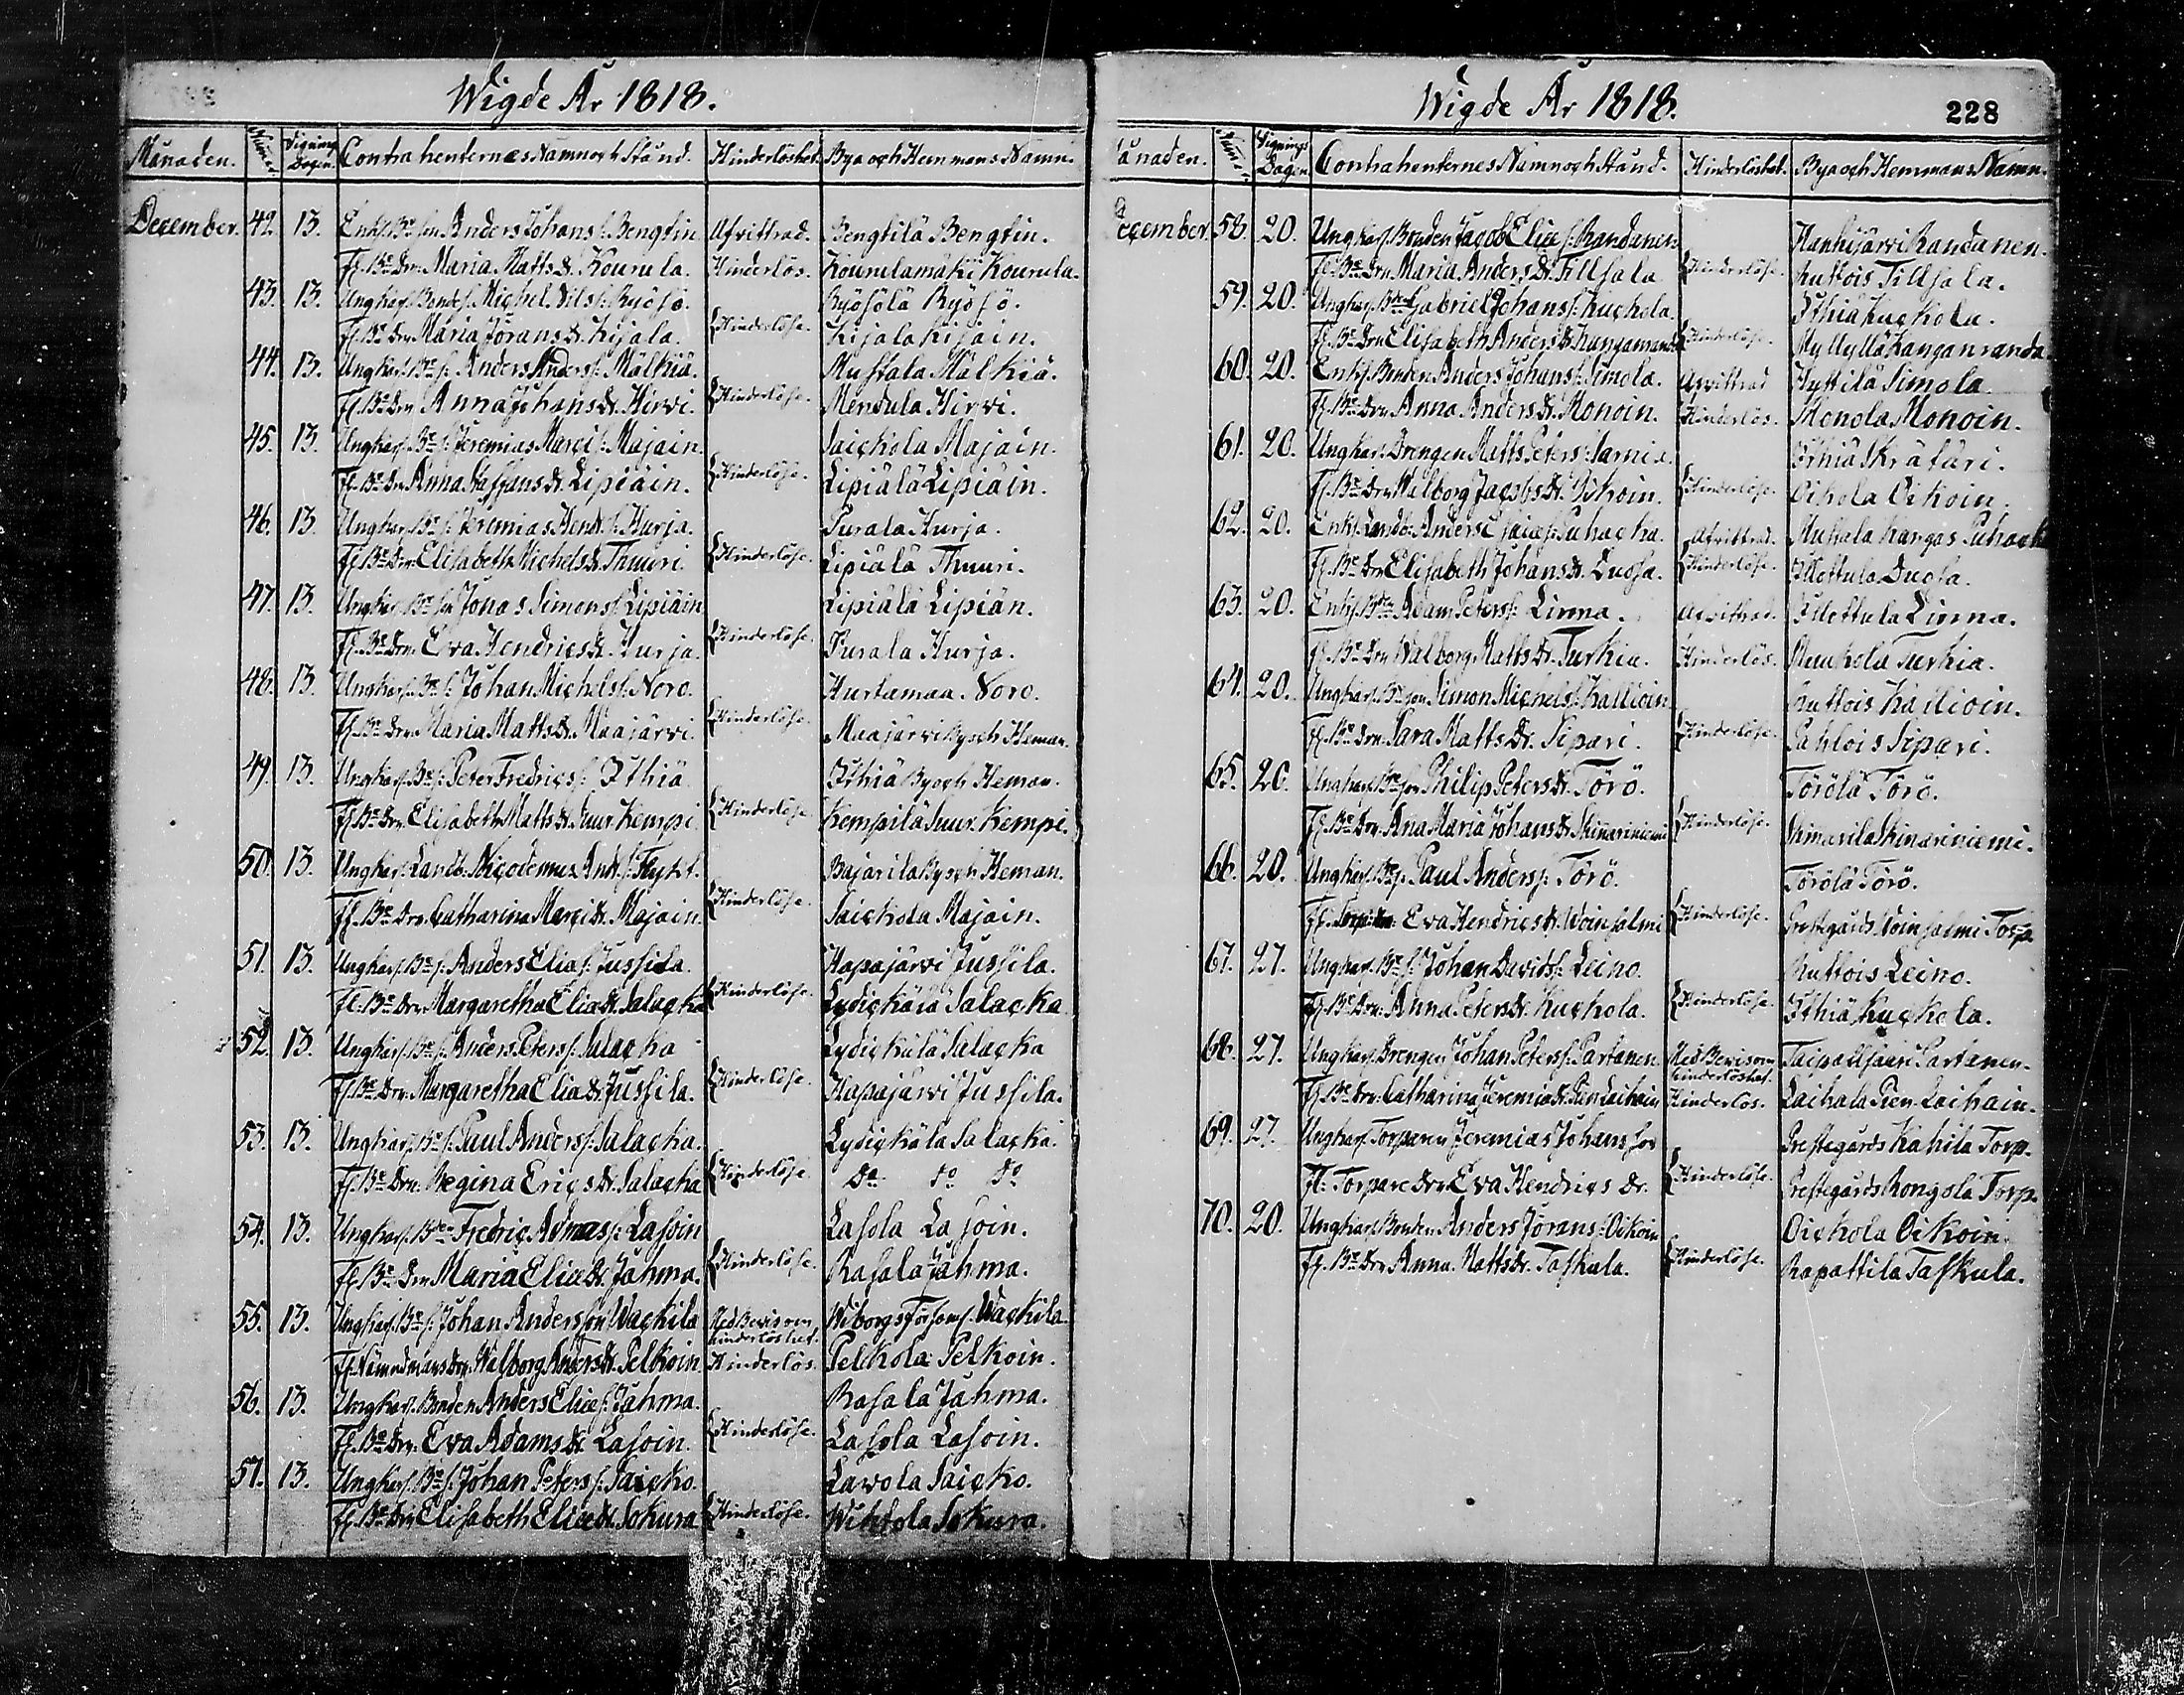 Wigde År 1818.
Månaden. Num: Vignings Dagen. Contrahenternes Namn och Stånd. Hinderlöshet. Bya och Hemmans Namn.
December. 42. 13. Enkl. Be son Anders Johans s. Bengtin Afvittrad. Bengtilä Bengtin.
Fl. Be Dr. Maria Matts Dr. Kourula. Hinderlös. Kourulamäki Kourula.
43. 13. Ungkarl. Bonde s. Michel Nils s. Ryösö. Ryösölä Ryösö.
Fl. Be Dr. Maria Jörans Dr. Kijala. Hinderlöse. Kijala Kijain.
44. 13. Ungkarl. Be s. Anders Anders s. Mälkiä. Mustala Mälkiä.
Fl. Be Dr. Anna Johans Dr. Hirvi. Hinderlöse. Mendula Hirvi.
45. 13. Ungkarl. Be s. Jeremias Marci s. Majain. Saickola Majain.
Fl. Be Dr. Anna Staffans Dr. Lipiäin. Hinderlöse. Lipiälä Lipiäin.
46. 13. Ungkarl. Be s. Jeremias Hend. s. Hurja. Purala Hurja.
Fl. Be Dr. Elisabeth Michels Dr. Thuuri. Hinderlöse. Lipiälä Thuuri.
47. 13. Ungkarl. Be son Jonas Simons s. Lipiäin Lipiälä Lipiän.
Fl. Be Dr. Eva Hendrics Dr. Hurja. Hinderlöse. Purala Hurja.
48. 13. Ungkarl. Be s. Johan Michels s. Noro. Hurtamaa Noro.
Fl. Be Dr. Maria Matts Dr. Maajärvi. Hinderlöse. Maajärvi By och Heman.
49. 13. Ungkarl. Be s. Peter Fredrics s. Ithiä. Ithiä By och Heman.
Fl. Be Dr. Elisabeth Matts Dr. Suur Kempi. Hinderlöse. Kempilä Suur Kempi.
50. 13. Ungkarl. Landb. Nicodemus And. s. Flykt. Bajarila By och Heman.
Fl. Be Dr. Catharina Marci Dr. Majain. Hinderlöse. Saickola Majain.
51. 13. Ungkarl. Be s. Anders Elia s. Jussila. Hapajärvi Jussila.
Fl. Be Dr. Margaretha Elia Dr. Salacka Hinderlöse. Lydickälä Salacka
52. 13. Ungkarl. Be s. Anders Peters s. Salacka Lydickälä Salacka
Fl. Be Dr. Margaretha Elia Dr. Jussila. Hinderlöse. Hapajärvi Jussila.
53. 13. Ungkarl. Be s. Paul Anders s. Salacka. Lydickälä Salacka.
Fl. Be Dr. Regina Erics Dr. Salacka Hinderlöse. Do do do
54. 13. Ungkarl. Bden Fredric Admas s. Lasoin Lasola Lasoin.
Fl. Be Dr. Maria Eliæ Dr. Jähma. Hinderlöse. Rasala Jähma.
55. 13. Ungkarl. Be s. Johan Andersson Wackila Med Bevis om hinderlöshet. Wiborgs Församl. Wackila.
Fl. Nämndmans Dr. Walborg Anders Dr. Pelkoin Hinderlös. Pelkola Pelkoin.
56. 13. Ungkarl. Bonden Anders Eliæ s. Jähma. Rasala Jähma.
Fl. Be Dr. Eva Adams Dr. Lasoin. Hinderlöse. Lasola Lasoin.
57. 13. Ungkarl. Be s. Johan Peters s. Saicko. Lavola Saicko.
Fl. Be Dr. Elisabeth Eliæ Dr. Sokura Hinderlöse. Wihtola Sokura.
Wigde År 1818.
228
Månaden. Num: Vignings Dagen Contrahenternes Namn och Stånd. Hinderlöshet. Bya och Hemmans Namn.
December. 58. 20. Ungkarl. Bonden Jacob Eliæ s. Randanen Hanhijärvi Randanen.
Fl. Be Dr. Maria Anders Dr. Tillsala Hinderlöse. Ruttois Tillsala.
59. 20. Ungkarl. Bden Gabriel Johans s. Kuckola Ithiä Kuckola.
Fl. Be Dr. Elisabeth Anders Dr. Kanganranda Hinderlöse. Myllylä Kanganranda.
60. 20. Enkl. Bonden Anders Johans s. Simola. Afvittrad Hyttilä Simola.
Fl. Be Dr. Anna Anders Dr. Monoin. Hinderlös. Monola Monoin.
61. 20. Ungkarl. Drengen Matts Peters s. Sarnia. Ithiä Skrätäri.
Fl. Be Dr. Walborg Jacobs Dr. Oikoin. Hinderlöse. Oikola Oikoin.
62. 20. Enkl. Landb. Anders Esaiæ s. Puhacka. Afvittrad. Mustala Kangas Puhack
Fl. Be Dr. Elisabeth Johans Dr. Duosa. Hinderlöse. Ilottula Duosa.
63. 20. Enkl. Bden Adam Peters s. Linna. Afvittrad. Ilottula Linna.
Fl. Be Dr. Walborg Matts Dr. Turkia. Hinderlös. Muukola Turkia.
64. 20. Ungkarl. Be son Simon Michels s. Kallioin Ruttois Kallioin.
Fl. Be Dr. Sara Matts Dr. Sipari. Hinderlöse. Pahlois Sipari.
65. 20. Ungkarl. Be son Philip Peters Dr. Törö. Törölä Törö.
Fl. Be Dr. Ana Maria Johans Dr. Skinariniemi Hinderlöse. Skinarila Skinariniemi.
66. 20. Ungkarl. Be s. Paul Anders s. Törö. Törölä Törö.
Fl. Eva Hendrics Dr. Woinsalmi Hinderlöse. Prestegårds Woinsalmi Torp
67. 27. Ungkarl. Be s. Johan Davids s. Leino. Ruttois Leino.
Fl. Be Dr. Anna Peters Dr. Kuckola. Hinderlöse. Ithiä Kuckola.
68. 27. Ungkarl. Drengen Johan Peters s. Partanen Med Bevis om hinderlöshet. Taipalsaari Partanen.
Fl. Be Dr. Catharina Jeremiæ Dr. Pien Laihain Hinderlös. Laihala Pien Laihain.
69. 27. Ungkarl. Torparen Jeremias Johans son Prestegårds Kahila Torp.
Fl. Torpare Dr. Eva Hendrics Dr. Hinderlöse. Prestegårds Rongola Torp.
70. 20. Ungkarl. Bonden Anders Jörans s. Oikoin Oickola Oikoin.
Fl. Be Dr. Anna Matts Dr. Taskula. Hinderlöse. Rapattila Taskula.